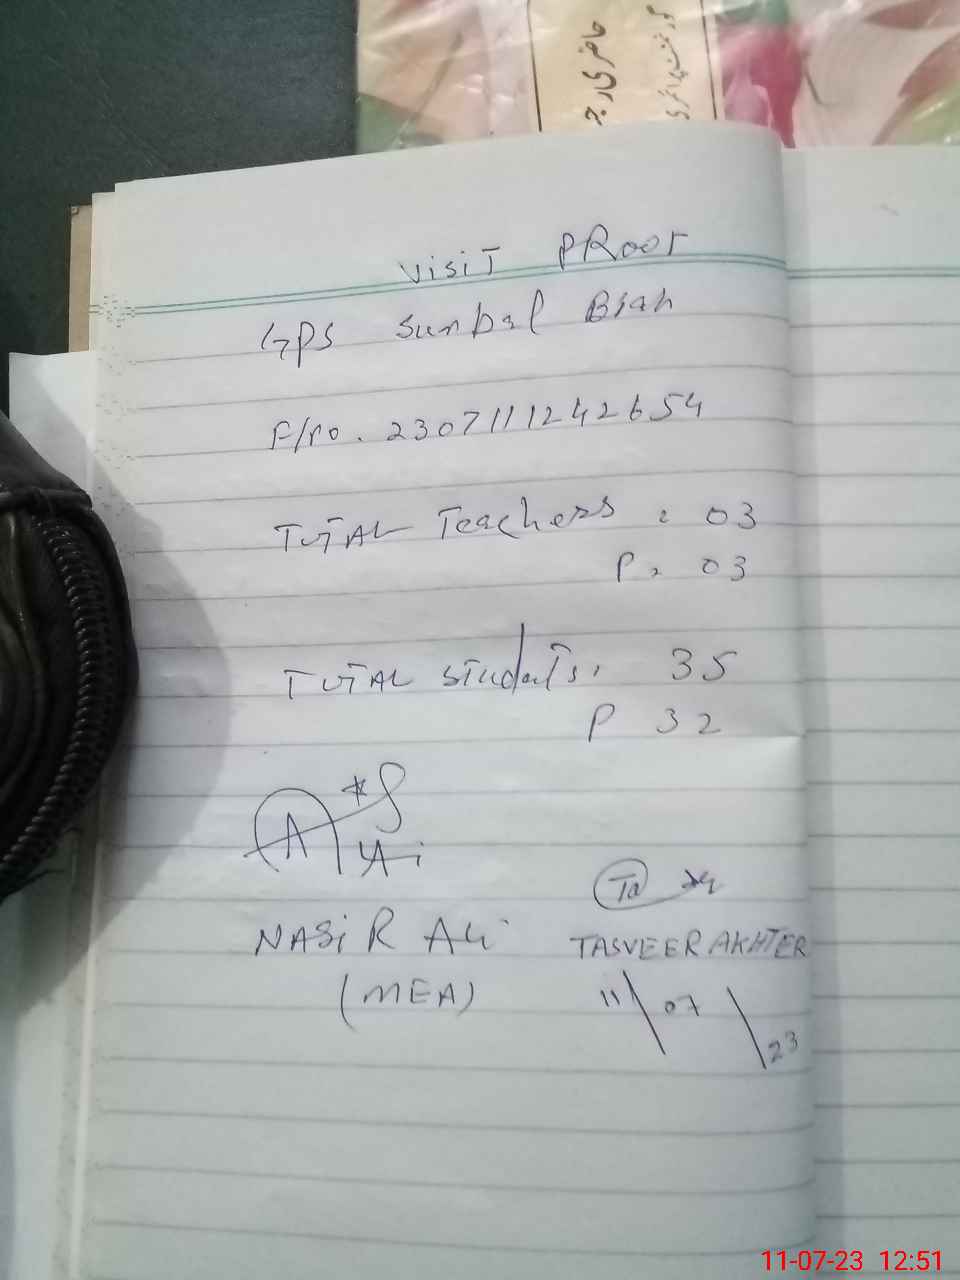 حاضری رج
گورنمنٹ پرائمری
Visit PRoof
GPS Sunbal Biah
F/no. 230711124 2654
TOTAL Teachers : 03
P : 03
TOTAL Students : 35
P 32
NASiR Ali
(MEA)
TASVEER AKHTER
11/07/23
11-07-23 12:51